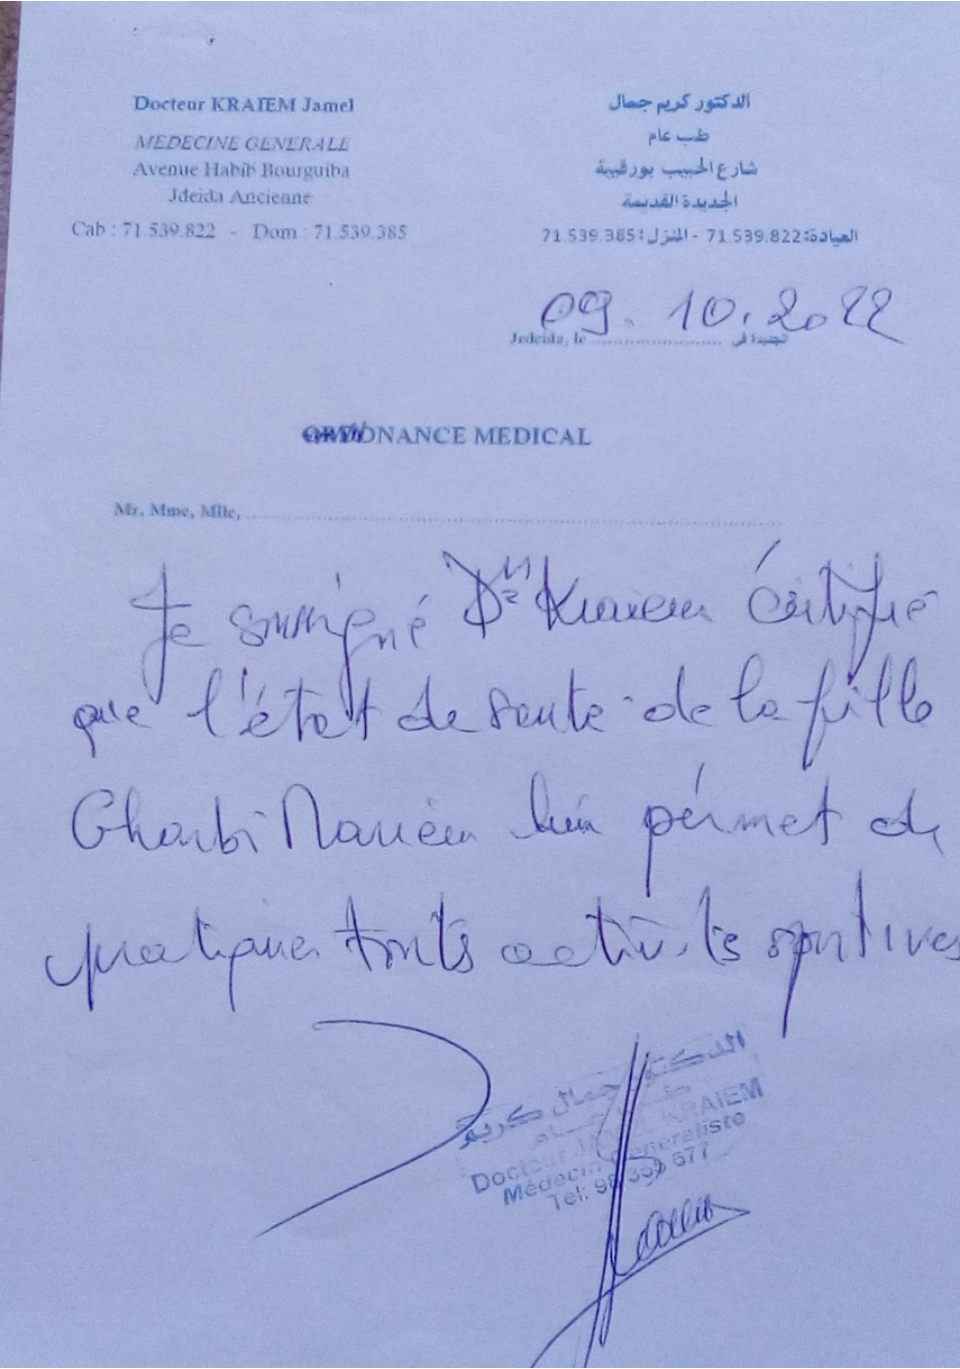 Docteur KRAIEM Jamel
MEDECINE GENERALE
Avenue Habib Bourguiba
Jdeida Ancienne
Cab : 71.539.822 - Dom : 71.539.385
الدكتور كريم جمال
طب عام
شارع الحبيب بورقيبة
الجديدة القديمة
العيادة: 71.539.822 - المنزل: 71.539.385
09.10.2022
Jedeida, le ........................ الجديدة في
ORDONANCE MEDICAL
Mr, Mme, Mlle, ........................
Je soussigné Dr Kraiem certifié
que l'état de santé de la fille
Gharbi Mariem lui pérmet de
pratiquer touts activités sportives
الدكتور جمال كريم
طب عام
Docteur KRAIEM
Médecin Généraliste
Tel: 677